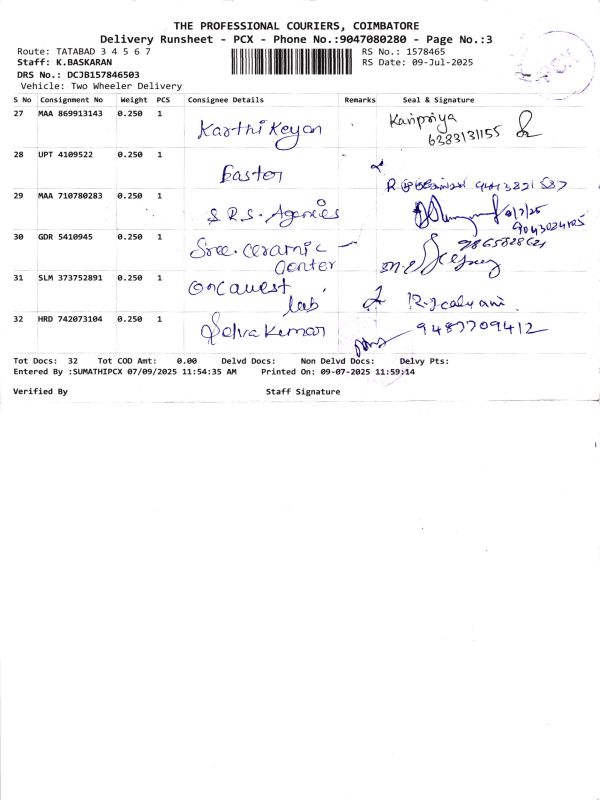 THE PROFESSIONAL COURIERS, COIMBATORE
Delivery Runsheet - PCX - Phone No.:9047080280 - Page No.:3
Route: TATABAD 3 4 5 6 7 RS No.: 1578465
Staff: K.BASKARAN RS Date: 09-Jul-2025
DRS No.: DCJB157846503
Vehicle: Two Wheeler Delivery
PCX
S No Consignment No Weight PCS Consignee Details Remarks Seal & Signature
27 MAA 869913143 0.250 1 Karthikeyan Karipriya
6383131155
28 UPT 4109522 0.250 1 Easter
29 MAA 710780283 0.250 1 S.R.S. Agencies
9043024105
30 GDR 5410945 0.250 1 Sree. Ceramic
Center
31 SLM 373752891 0.250 1 Oncquest
lab
32 HRD 742073104 0.250 1 Selva Kumar 9487709412
Tot Docs: 32 Tot COD Amt: 0.00 Delvd Docs: Non Delvd Docs: Delvy Pts:
Entered By :SUMATHIPCX 07/09/2025 11:54:35 AM Printed On: 09-07-2025 11:59:14
Verified By Staff Signature